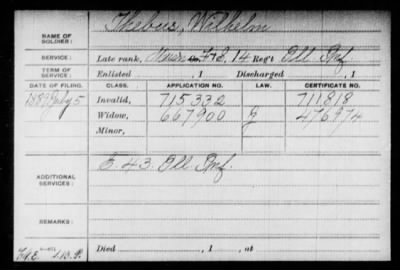 Thebus, Wilhelm
NAME OF
SOLDIER:
SERVICE: Late rank, F & S, 14 Reg't Ill Inf.
TERM OF
SERVICE: Enlisted , 1 Discharged , 1
DATE OF FILING. CLASS. APPLICATION NO. LAW. CERTIFICATE NO.
1889 July 5 Invalid, 715332 711818
Widow, 667900 G 476974
Minor,
E. 43. Ill Inf.
ADDITIONAL
SERVICES:
REMARKS:
Died , 1 , at